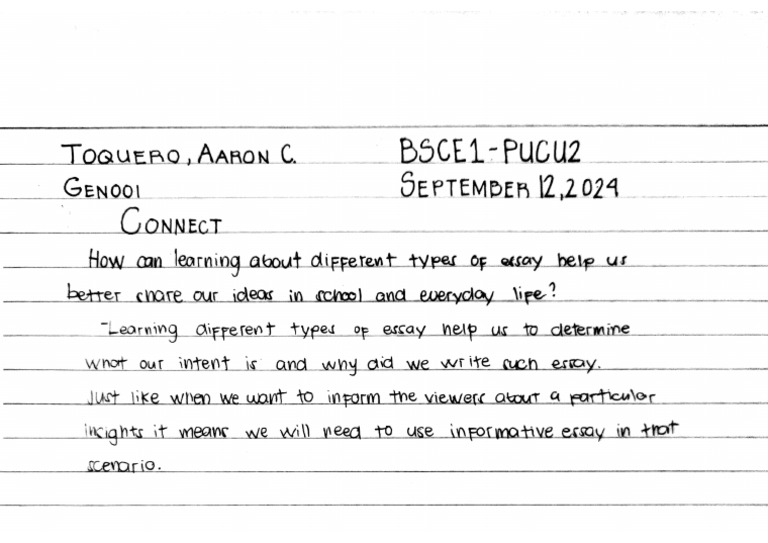 TOQUERO, AARON C. BSCE1-PUCU2
GEN001 SEPTEMBER 12, 2024
CONNECT
How can learning about different types of essay help us
better share our ideas in school and everyday life?
-Learning different types of essay help us to determine
what our intent is and why did we write such essay.
Just like when we want to inform the viewers about a particular
insights it means we will need to use informative essay in that
scenario.